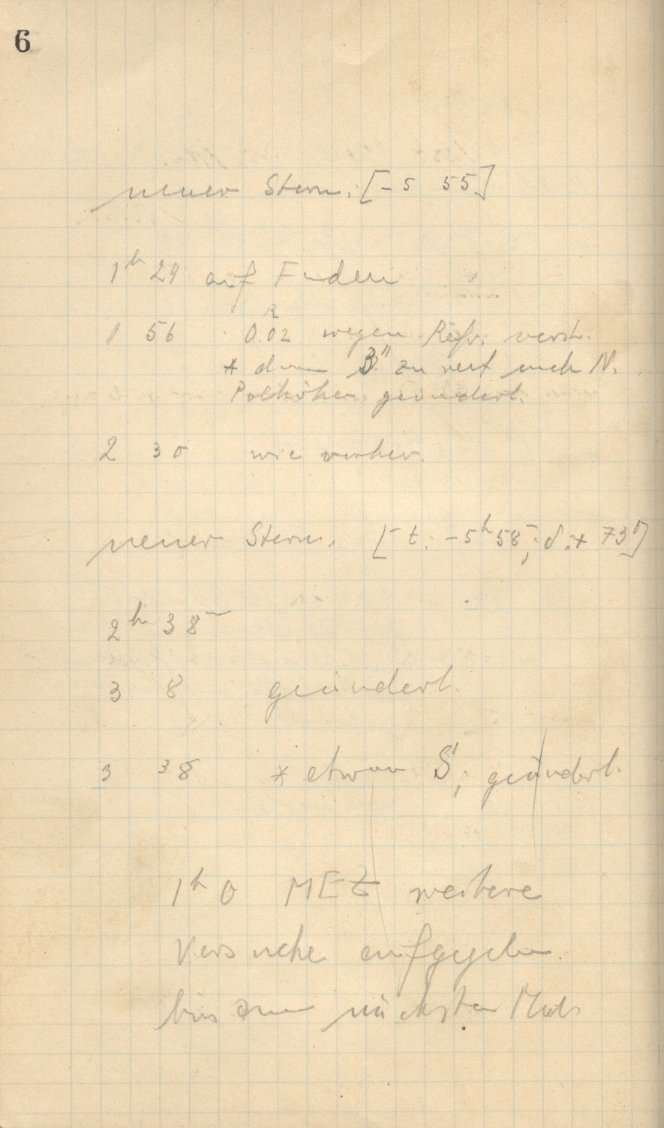 6
neuer Stern. [-5 55]
1h 29 auf Faden
1 56 0.02 wegen Refr. verst.
* dann 3" zu nach N.
Polhöhe geändert.
2 30 wie vorher.
neuer Stern. [t: -5h 58m; δ: + 73°]
2h 38m
3 8 geändert.
3 38 * etwas S, geändert.
1h 0 MEZ weitere
Versuche aufgegeben
bis zum nächsten Mal.